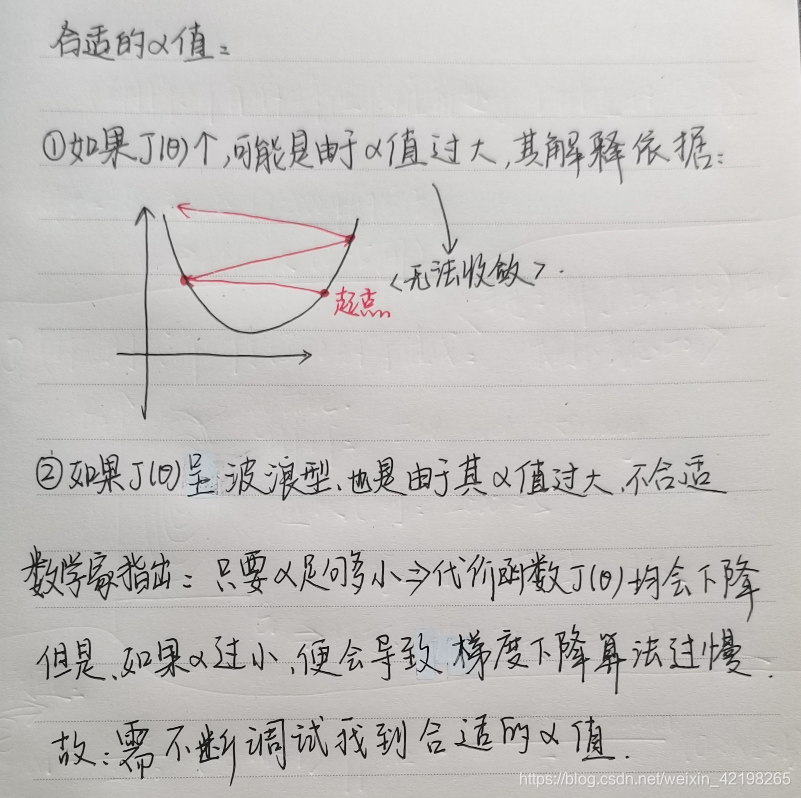 合适的α值：
①如果J(θ)↑,可能是由于α值过大,其解释依据：
<无法收敛>.
起点
②如果J(θ)呈波浪型、也是由于其α值过大、不合适
数学家指出：只要α足够小⇒代价函数J(θ)均会下降
但是、如果α过小、便会导致梯度下降算法过慢.
故：需不断调试找到合适的α值.
https://blog.csdn.net/weixin_42198265